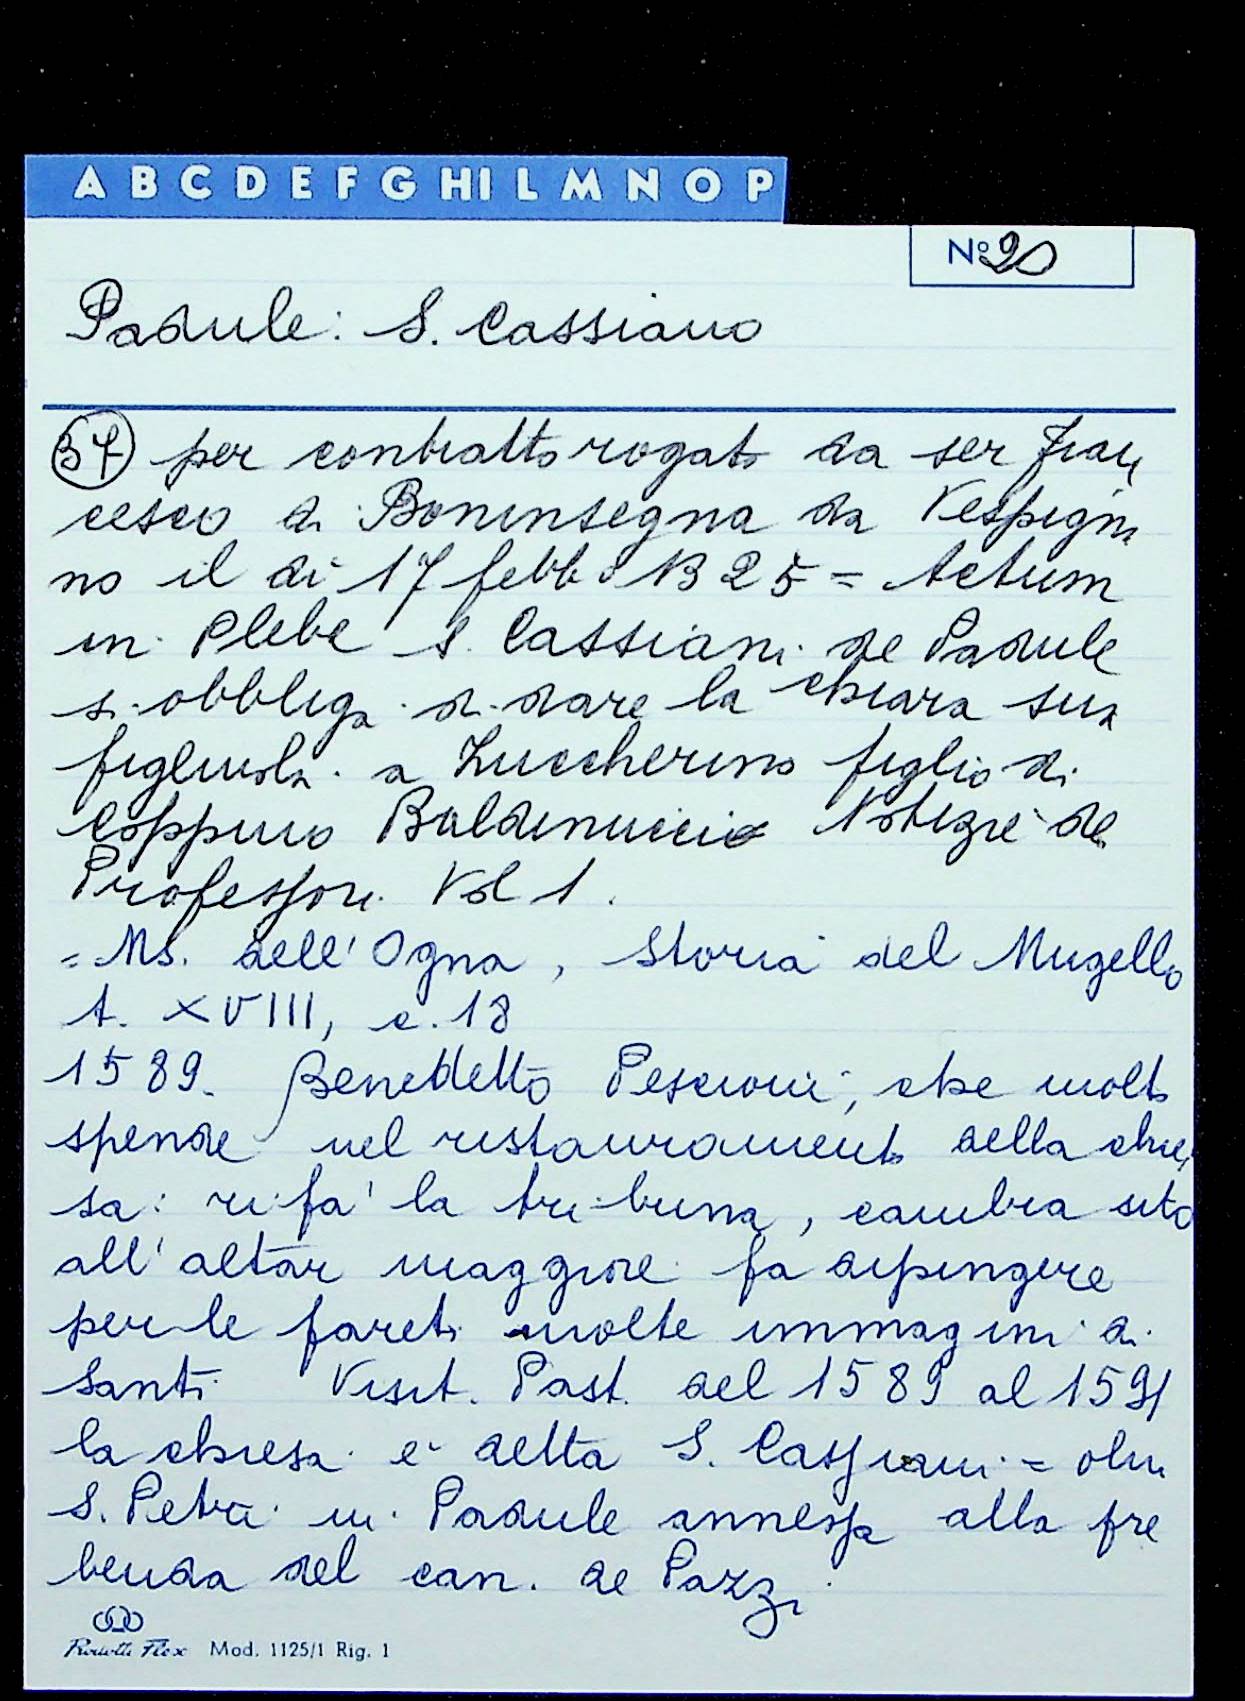 A B C D E F G HI L M N O P
Nº 20
Padule: S. Cassiano
37 per contratto rogato da ser Fran
cesco di Boninsegna da Vespigna
no il dì 17 febb.o 1325 = Actum
in Plebe S. Cassiani de Padule
si obbliga di dare la Chiara sua
figliuola a Zuccherino figlio di
Coppino Baldinucci Notizie de
Professori Vol 1.
= Ms. dell'Ogna, Storia del Mugello
t. XVIII, c. 18
1589. Benedetto Pescioni, che molto
spende nel restauramento della chie
sa: rifà la tribuna, cambia sito
all'altar maggiore fa dipingere
per le pareti molte immagini di
Santi Visit. Past. del 1589 al 1591
la chiesa è detta S. Cassiani = olim
S. Petri in Padule annessa alla pre
benda del can. de Pazzi
Mod. 1125/1 Rig. 1